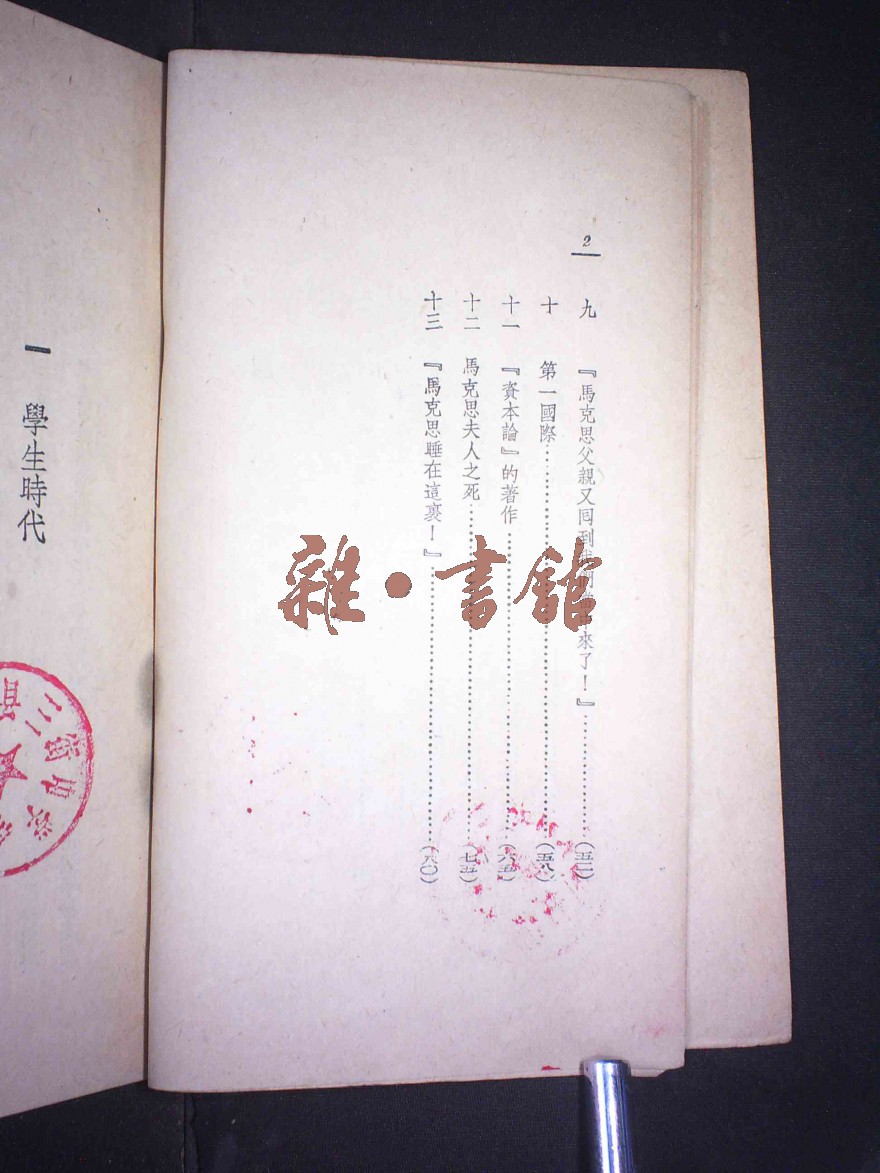 2
九 『馬克思父親又囘到 來了!』…………(五二)
十 第一國際…………(五八)
十一 『資本論』的著作…………(六五)
十二 馬克思夫人之死…………(七五)
十三 『馬克思睡在這裏!』…………(八〇)
一 學生時代
雜·書館